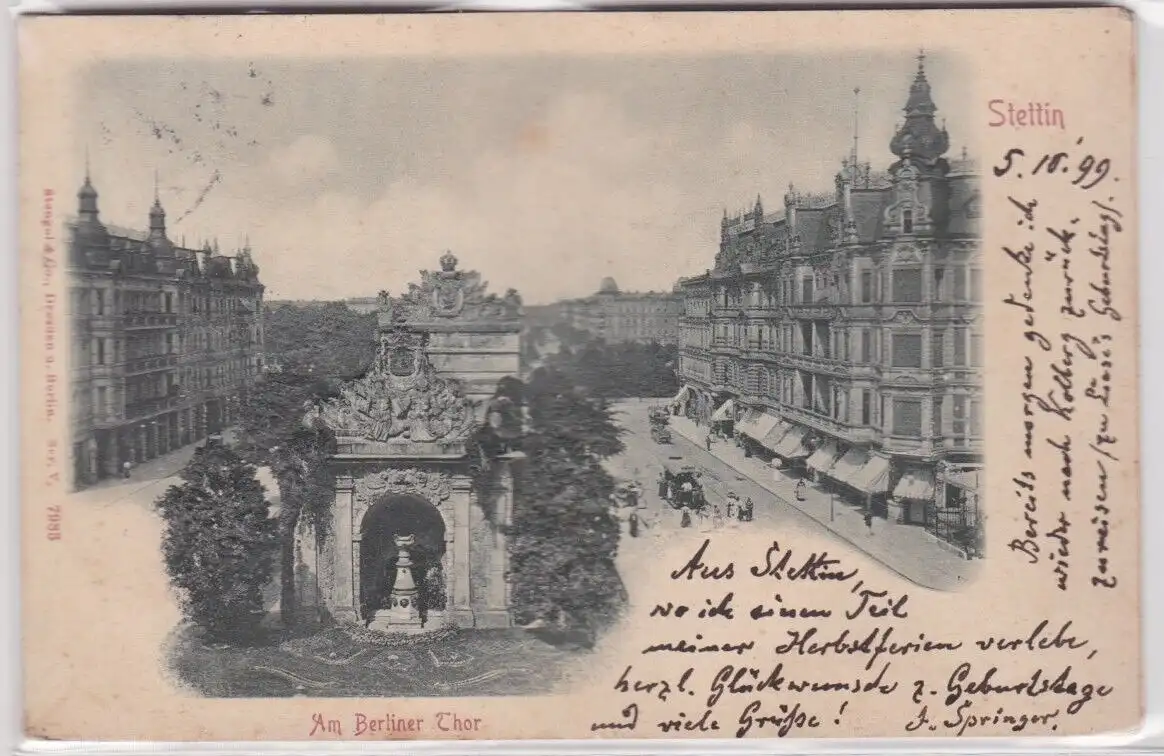 Stettin
5.10.99.
Aus Stettin,
wo ich einen Teil
meiner Herbstferien verlebe,
herzl. Glückwunsch z. Geburtstage
und viele Grüße! J. Springer.
Bereits morgen gedenke ich
wieder nach Kolberg zurück-
zureisen (zu Luise's Geburtstag).
Am Berliner Thor
Stengel & Co., Dresden u. Berlin. Ser. V, 7988